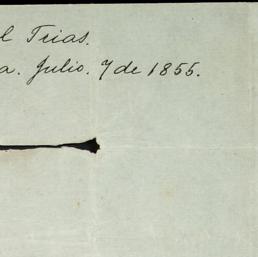 l Trias.
a. Julio. 7 de 1855.